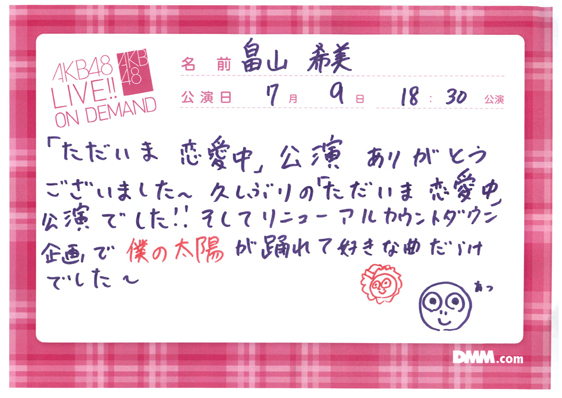 AKB48
LIVE!!
ON DEMAND
AKB
48
名前 畠山 希美
公演日 7月 9日 18:30 公演
「ただいま 恋愛中」公演 ありがとう
ございました〜 久しぶりの「ただいま 恋愛中」
公演でした!! そしてリニューアルカウントダウン
企画で 僕の太陽 が踊れて好きな曲だらけ
でした〜
あっ
DMM.com